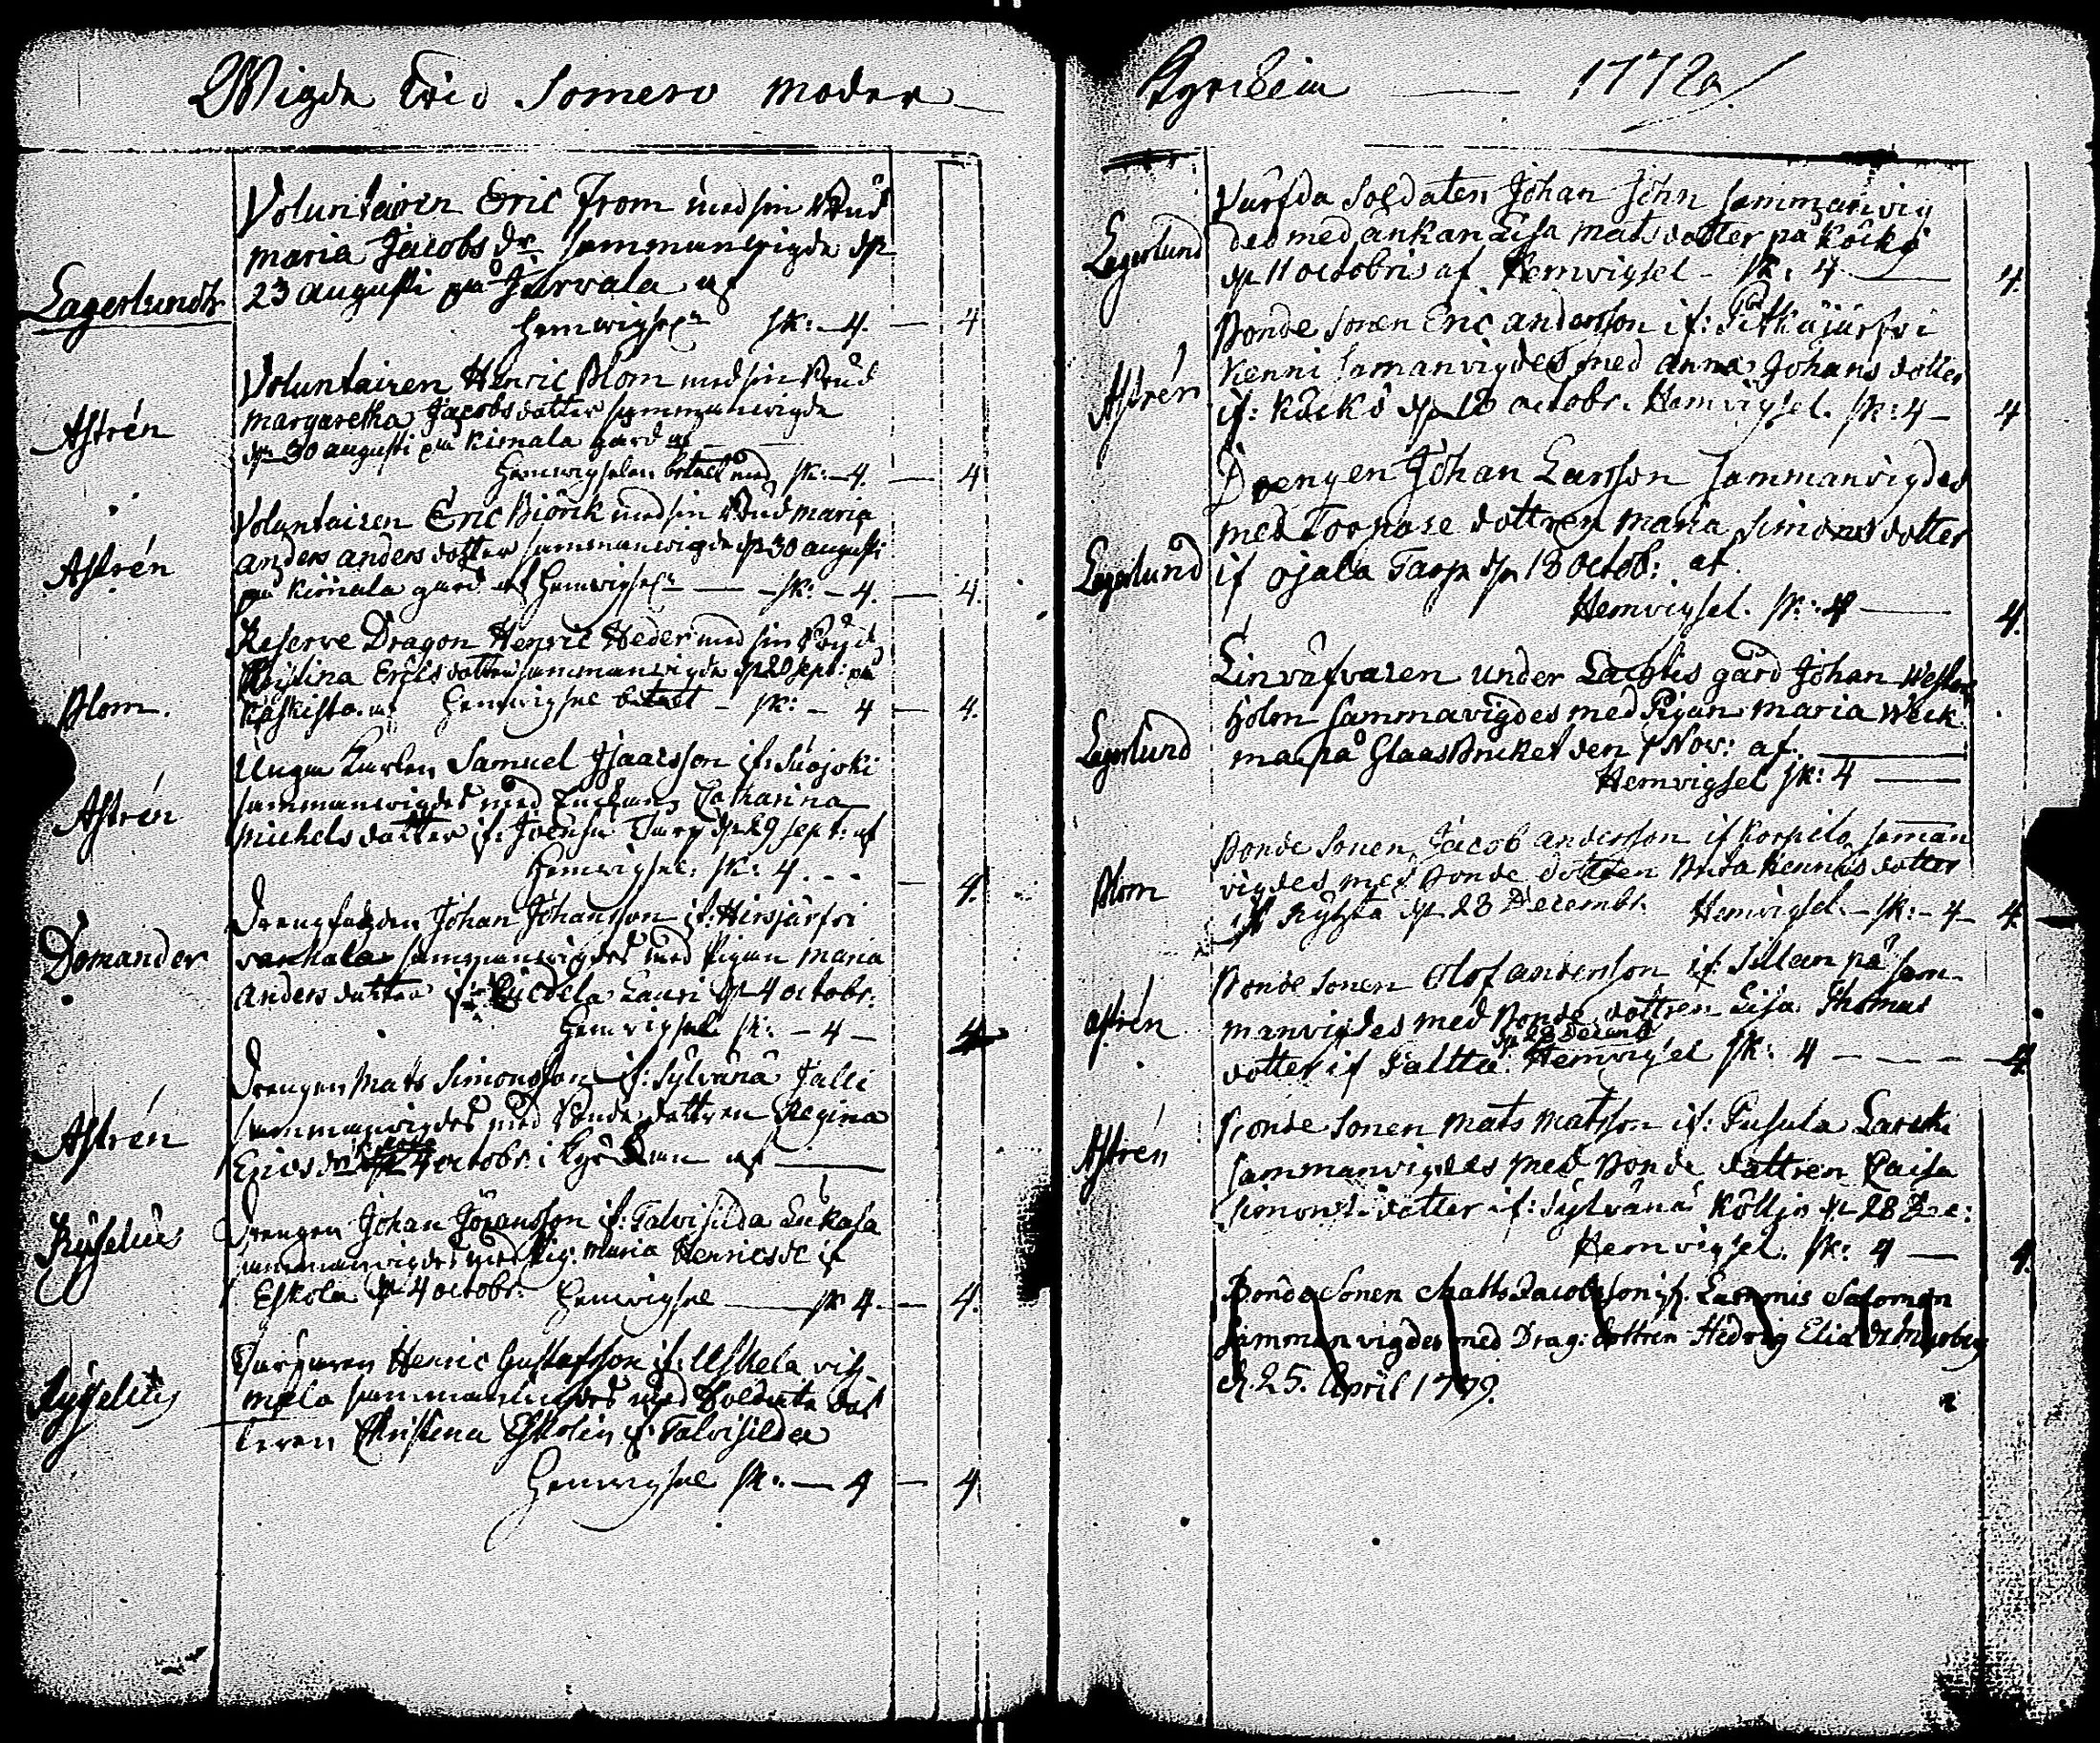 Wigde wid Somero moder
Lagerlundh
Voluntairen Eric From med sin Brud
maria Jacobs dr. sammanwigde d.
23 augusti på Jurvala af
Hemwigsel sk: 4. — 4
Astrén
Voluntairen Henric Blom med sin Brud
margaretha Jacobsdotter sammanwigde
d. 30 augusti på Kimala gård af
Hemwigselen betalt med sk: 4. — 4
Astrén
Voluntairen Eric Biörk med sin Brud maria
anders anders dotter sammanwigde d. 30 augusti
på Kimala gård af Hemwigsel — sk: 4. — 4.
Blom.
Reserve Dragon Henric Heder med sin Brud
Christina Ericsdotter sammanwigde d. 20 sept: på
Hemwigsel betalt - sk: - 4 — 4.
Astrén
Unga Karlen Samuel Isaacsson if: Suojoki
sammanwigdes med Enckan Catharina
Michelsdotter if: Torp d. 29 sept: af
Hemwigsel: sk: 4 . - - — 4.
Domander
Johan Johansson if: Hirsjärfvi
vanhala sammanwigdes med Pigan maria
andersdotter if: Lauri d. 4 octobr:
Hemwigsel sk: - 4 — 4
Astrén
Drengen Mats Simonsson if: Sylvänä Jalli
sammanwigdes med Bonde dottren Regina
Ericsdotter d. 4 octobr: i Kyrckan af
Ryselius
Drengen Johan Jöransson if: Talvisilda Lukala
sammanwigdes med Pig: Maria Henricsdr if
Eskola d. 4 octobr: Hemwigsel — sk 4. — 4.
Ryselius
Henric Gustafsson if: Uskela
sammanwigdes med Soldate dot
teren Christina Eskolin if: Talvisilda
Hemwigsel sk: — 4 — 4
Kyrckia — 1772
Lagerlund
Värfda Soldaten Johan John sammanvig
des med änkan Lisa Mats dotter på Kåckö
d. 11 octobris af Hemvigsel - sk: 4 — 4.
Astrén
Bonde Sonen Eric andersson if: Pitkäjärfvi
Kenni Samanvigdes med anna Johans dotter
if: Kåckö d. 18 octobr. Hemvigsel. sk: 4 — 4
Lagerlund
Drengen Johan Larsson sammanvigdes
med Torpare dottren maria Simonsdotter
if ojala Tarp d. 18 octob: af
Hemvigsel. sk: 4 — 4.
Lagerlund
Linväfvaren under Lachtis gård Johan Wester
holm sammavigdes med Pigan maria Weck
ma på Glaas Bruket den 1 Nov: af.
Hemvigsel sk: 4
Blom
Bonde Sonen Jacob andersson if Korpela saman
vigdes med Bonde dottren Brita Hennics dotter
if d. 28 Decembr: Hemvigsel - sk: - 4 - 4
astrén
Bonde sonen Olof andersson if: Sillanpä sam
manvigdes med Bonde dottren Lisa Thomas
d. 28 Decemb
dotter if Jaltta. Hemvigsel sk: 4 — 4
Astrén
Bonde Sonen Mats Matsson if: Pusula Larcki
sammanvigdes med Bonde dottren Caisa
Simons dotter if: Sylvänä Källi d. 28 Dec:
Hemvigsel. sk: 4 — 4.
Bonde Sonen Matts Jacobsson if. Lammis Salomon
sammanvigdes med Drag: dottren Hedvig Elia
d. 25. April 1779.